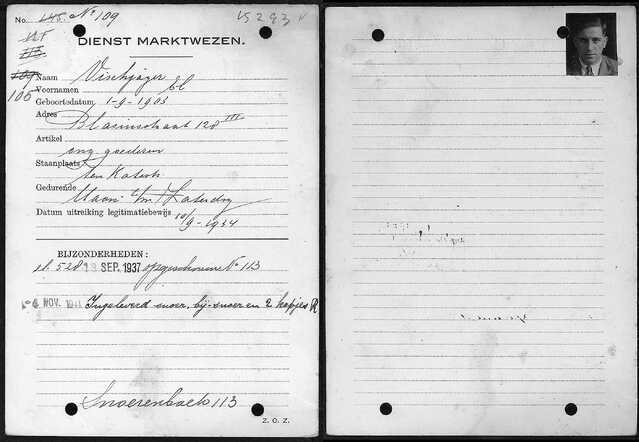 No. 145. No 109
15293 v
125
113
DIENST MARKTWEZEN.
109
106
Naam Vischjager
Voornamen El
Geboortedatum: 1-9-1903
Adres Blasiusstraat 128 III
Artikel
ong. goederen
Staanplaats
ten Kate
Gedurende
Maan t/m Zaterdag
Datum uitreiking legitimatiebewijs 10/9-1934
BIJZONDERHEDEN:
528 13 SEP. 1937 opgenomen No 113
4 NOV. 1941 Ingeleverd snoer, bij-snoer en 2 kapjes R
Snoerenboek 113
Z. O. Z.